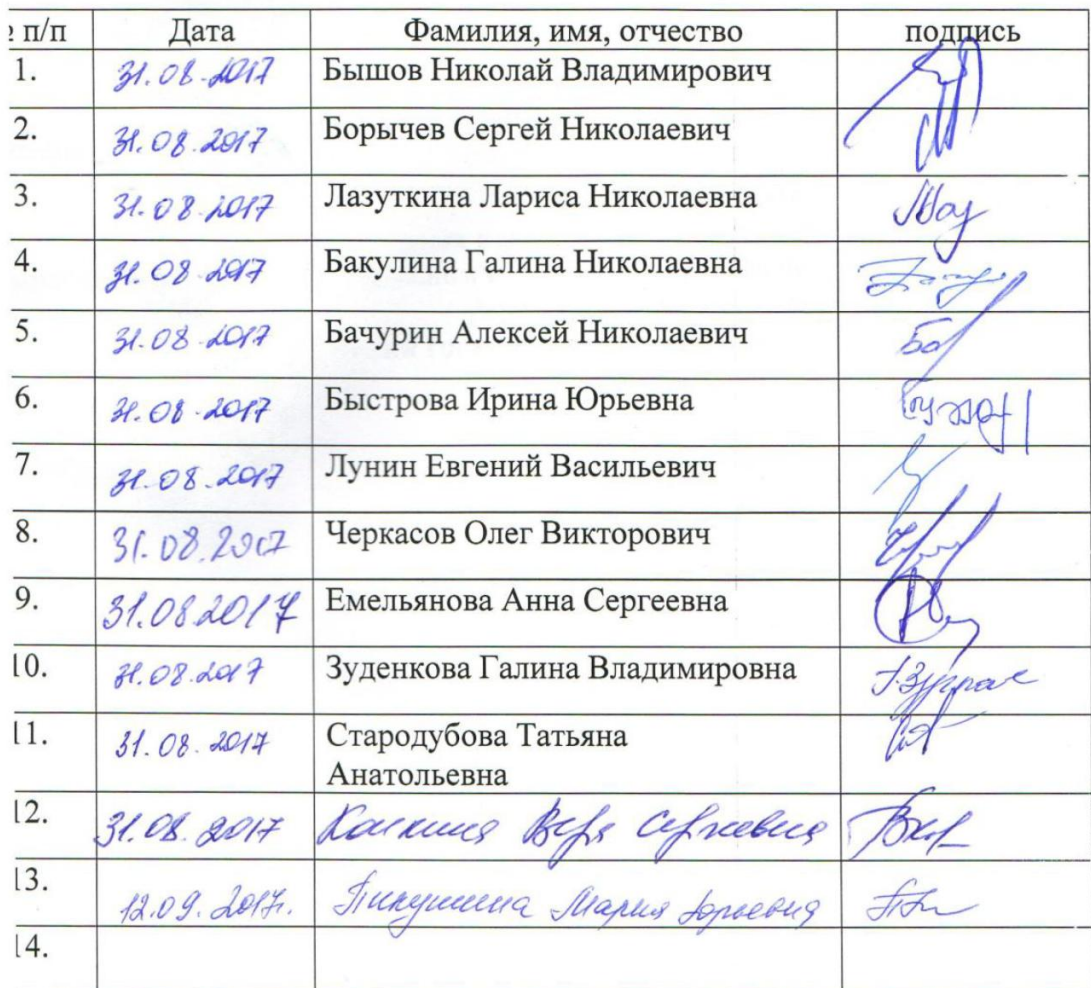 № п/п Дата Фамилия, имя, отчество подпись
1. 31.08.2017 Бышов Николай Владимирович
2. 31.08.2017 Борычев Сергей Николаевич
3. 31.08.2017 Лазуткина Лариса Николаевна
4. 31.08.2017 Бакулина Галина Николаевна
5. 31.08.2017 Бачурин Алексей Николаевич
6. 31.08.2017 Быстрова Ирина Юрьевна
7. 31.08.2017 Лунин Евгений Васильевич
8. 31.08.2017 Черкасов Олег Викторович
9. 31.08.2017 Емельянова Анна Сергеевна
10. 31.08.2017 Зуденкова Галина Владимировна
11. 31.08.2017 Стародубова Татьяна
Анатольевна
12. 31.08.2017 Конкина Вера Сергеевна
13. 12.09.2017г. Пикушина Мария Юрьевна
14.